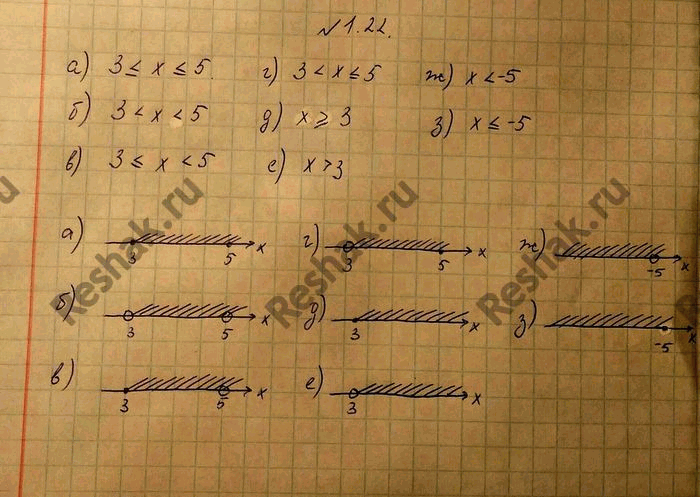 №1.22.
а) 3 ≤ x ≤ 5. г) 3 < x ≤ 5 ж) x < -5
б) 3 < x < 5 д) x ⩾ 3 з) x ≤ -5
в) 3 ≤ x < 5 е) x > 3
а) 3 5 x г) 3 5 x ж) -5 x
б) 3 5 x д) 3 x з) -5 x
в) 3 5 x е) 3 x
Reshak.ru
Reshak.ru
Reshak.ru
ru